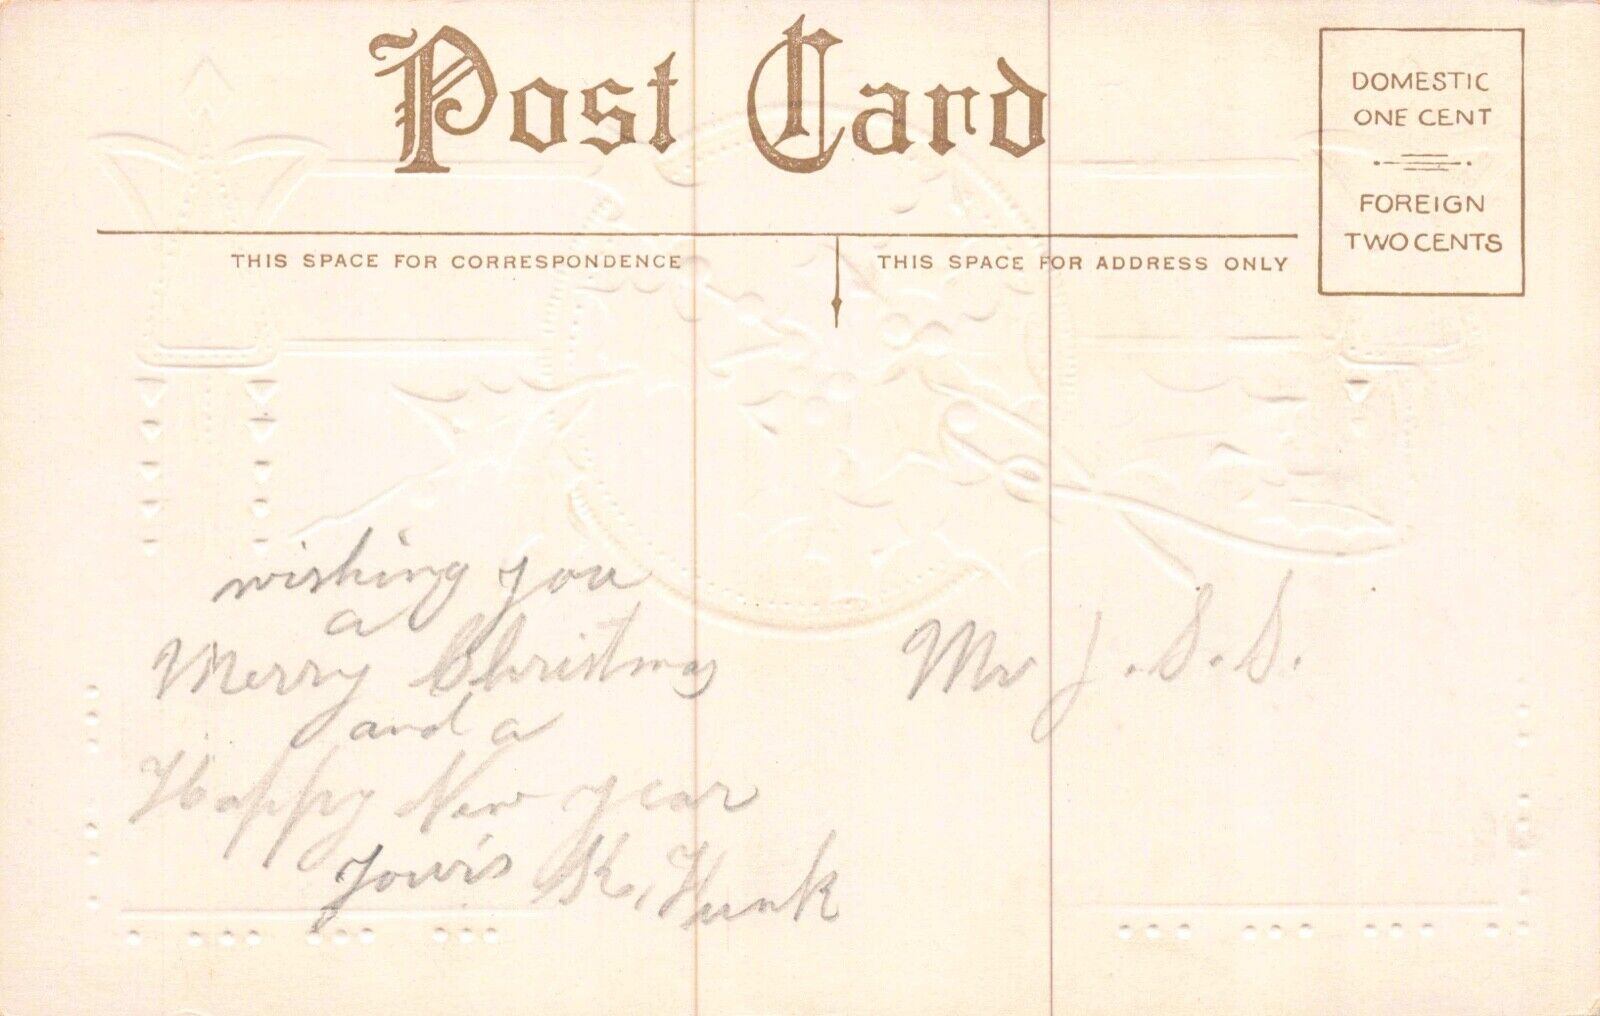 Post Card
DOMESTIC
ONE CENT
FOREIGN
TWO CENTS
THIS SPACE FOR CORRESPONDENCE
THIS SPACE FOR ADDRESS ONLY
wishing you
a
Merry Christmas
and a
Happy New year
K. Hunk
Mr J. S. S.